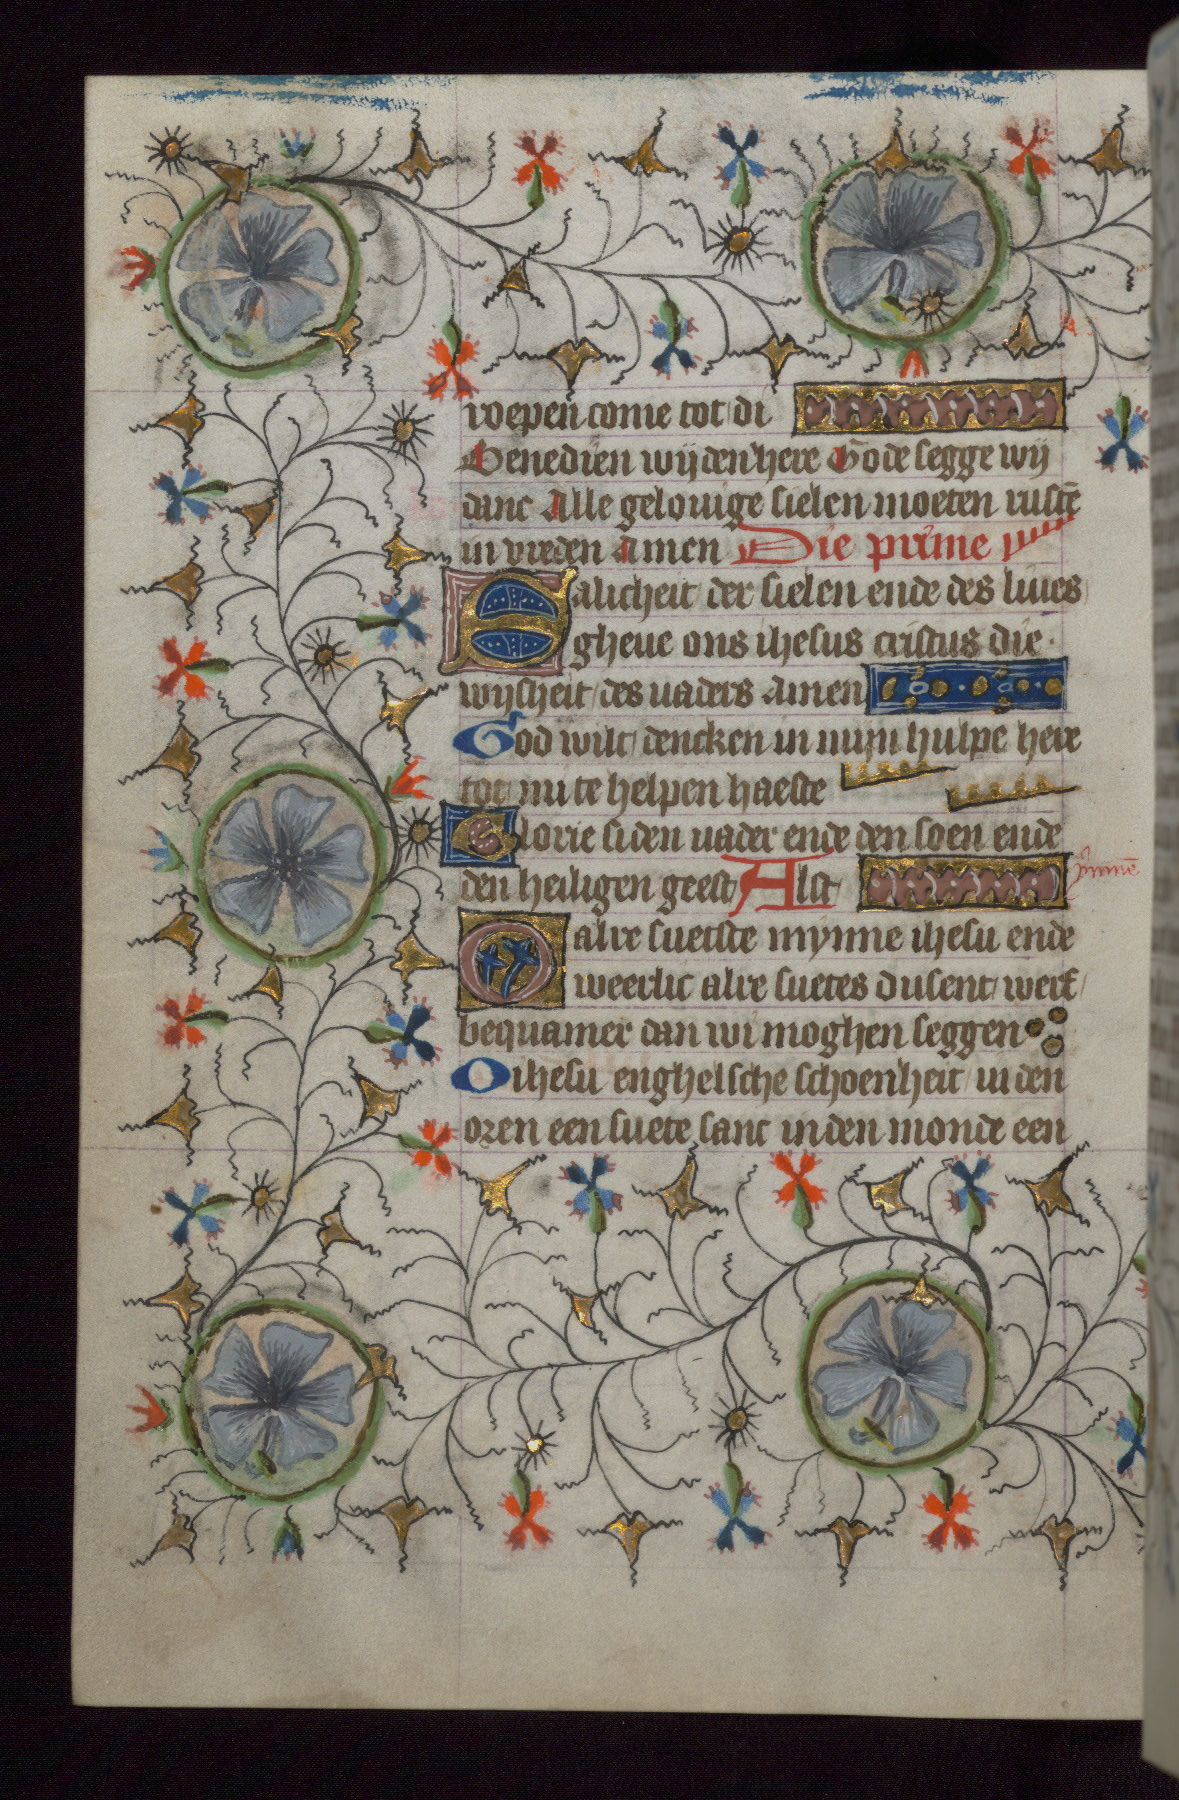 roepen come tot di
Benediën wij den here Gode segge wij
danc Alle gelouige sielen moeten rustē
in vreden Amen Die prime
Salicheit der sielen ende des liues
gheue ons ihesus cristus die
wijsheit des uaders Amen
God wilt dencken in mijn hulpe here
tot mi te helpen haeste
Glorie si den uader ende den soen ende
den heiligen geest Alst
O alre suetste mynne ihesu ende
weerlic alre suetes dusent werf
bequamer dan wi moghen seggen
O ihesu enghelsche schoenheit in den
oren een suete sanc in den monde een